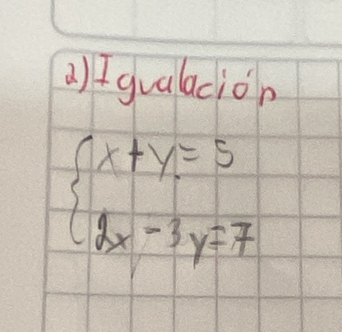 2) Igualación
x+y=5
2x-3y=7